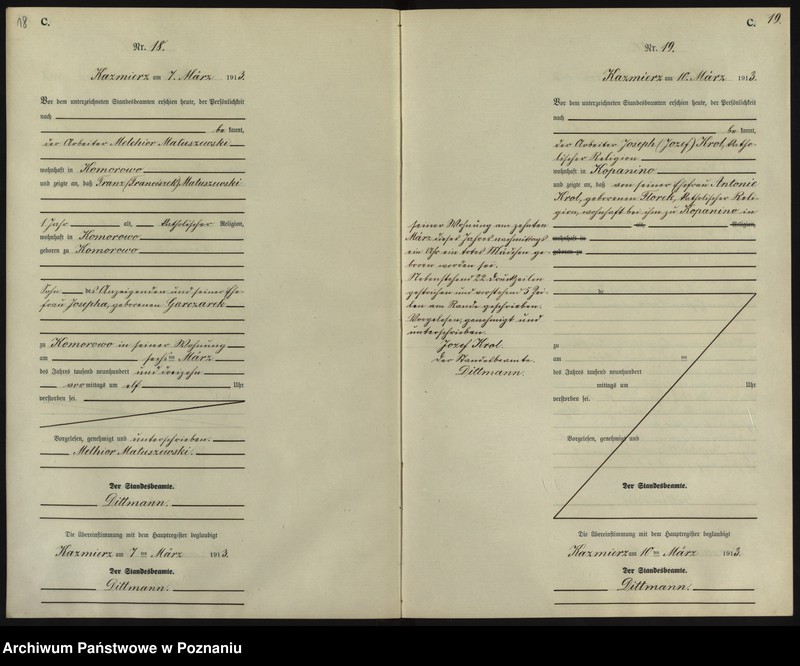 18 C.
Nr. 18.
Kazmierz am 7. März 1913.
Vor dem unterzeichneten Standesbeamten erschien heute, der Persönlichkeit
nach
be kannt,
der Arbeiter Melchior Matuszewski
wohnhaft in Komorowo
und zeigte an, daß Franz (Franciszek) Matuszewski
1 Jahr alt, katholischer Religion,
wohnhaft in Komorowo
geboren zu Komorowo
Sohn des Anzeigenden und seiner Ehe-
frau Josepha, geborenen Garczarek
zu Komorowo in seiner Wohnung
am sechsten März
des Jahres tausend neunhundert und dreizehn
vormittags um elf Uhr
verstorben sei.
Vorgelesen, genehmigt und unterschrieben.
Melhior Matuszewski.
Der Standesbeamte.
Dittmann.
Die Übereinstimmung mit dem Hauptregister beglaubigt
Kazmierz am 7ten März 1913.
Der Standesbeamte.
Dittmann.
C. 19.
Nr. 19.
Kazmierz am 10. März 1913.
Vor dem unterzeichneten Standesbeamten erschien heute, der Persönlichkeit
nach
be kannt,
der Arbeiter Joseph (Jozef) Krol, katho-
lischer Religion
wohnhaft in Kopanino
und zeigte an, daß von seiner Ehefrau Antonie
Krol, geborenen Storch, katholischer Reli-
gion, wohnhaft bei ihm zu Kopanino in
seiner Wohnung am zehnten
März dieses Jahres nachmittags
ein Uhr ein totes Mädchen ge-
boren worden sei.
Nebenstehend 22 Druckzeilen
gestrichen und vorstehend 5 Zei-
len am Rande geschrieben.
Vorgelesen, genehmigt und
unterschrieben.
Jozef Krol.
Der Standesbeamte.
Dittmann.
alt, Religion,
wohnhaft in
geboren zu
de
zu
am ten
des Jahres tausend neunhundert
mittags um Uhr
verstorben sei.
Vorgelesen, genehmigt und
Der Standesbeamte.
Die Übereinstimmung mit dem Hauptregister beglaubigt
Kazmierz am 10ten März 1913.
Der Standesbeamte.
Dittmann.
Archiwum Państwowe w Poznaniu